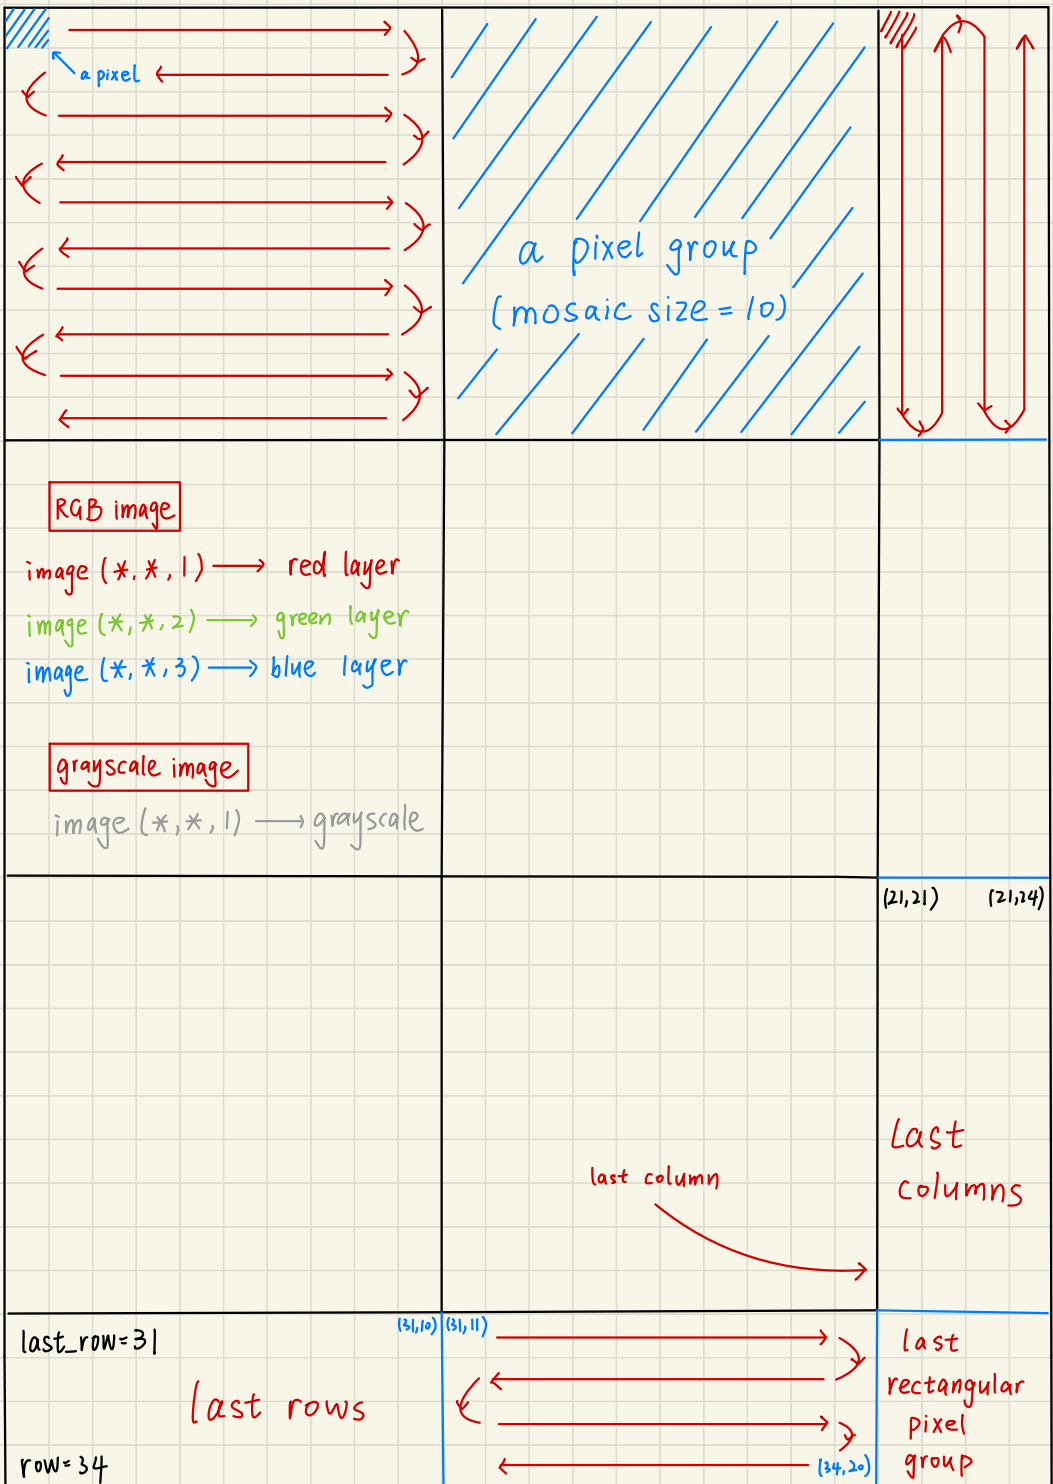 a pixel
a pixel group
(mosaic size = 10)
RGB image
image (*.*,1) → red layer
image (*,*,2) → green layer
image (*,*,3) → blue layer
grayscale image
image (*,*,1) → grayscale
(21,21) (21,24)
Last
columns
last column
last_row=31
(31,10) (31,11)
last rows
row=34
(34,20)
last
rectangular
pixel
group